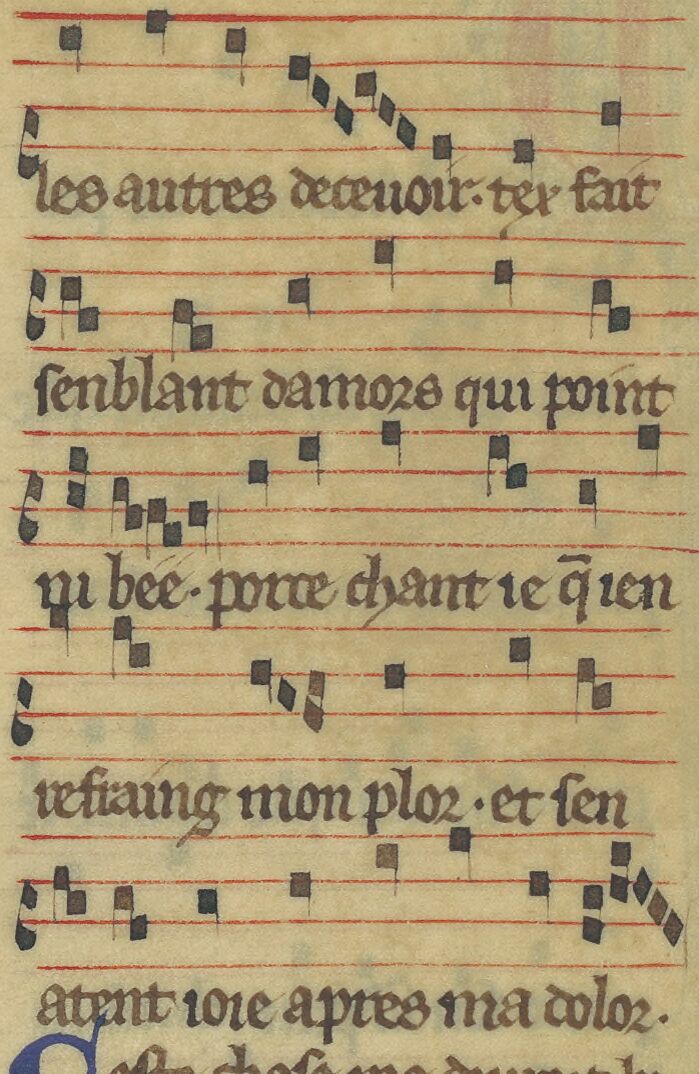 les autres deceuoir. tex fait
senblant damors qui point
ni bee. por ce chant ie q̄ ien
refraing mon plor. et sen
atent ioie apres ma dolor.